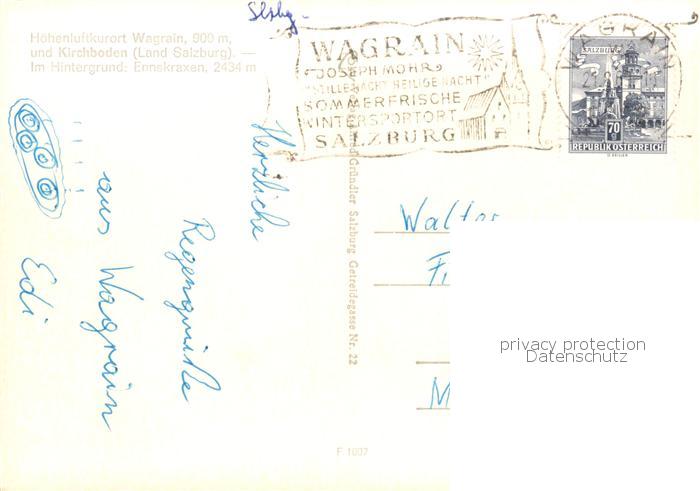 Slzbg.
Höhenluftkurort Wagrain, 900 m,
und Kirchboden (Land Salzburg). —
Im Hintergrund: Ennskraxen, 2434 m
WAGRAIN
JOSEPH MOHR
"STILLE NACHT HEILIGE NACHT"
SOMMERFRISCHE
WINTERSPORTORT
SALZBURG
WAGRAIN
SALZBURG
70
REPUBLIK ÖSTERREICH
Herzliche
Regengrüße
aus Wagrain
Edi
Gründler Salzburg, Getreidegasse Nr. 22
Walter
F
M
privacy protection
Datenschutz
F 1007